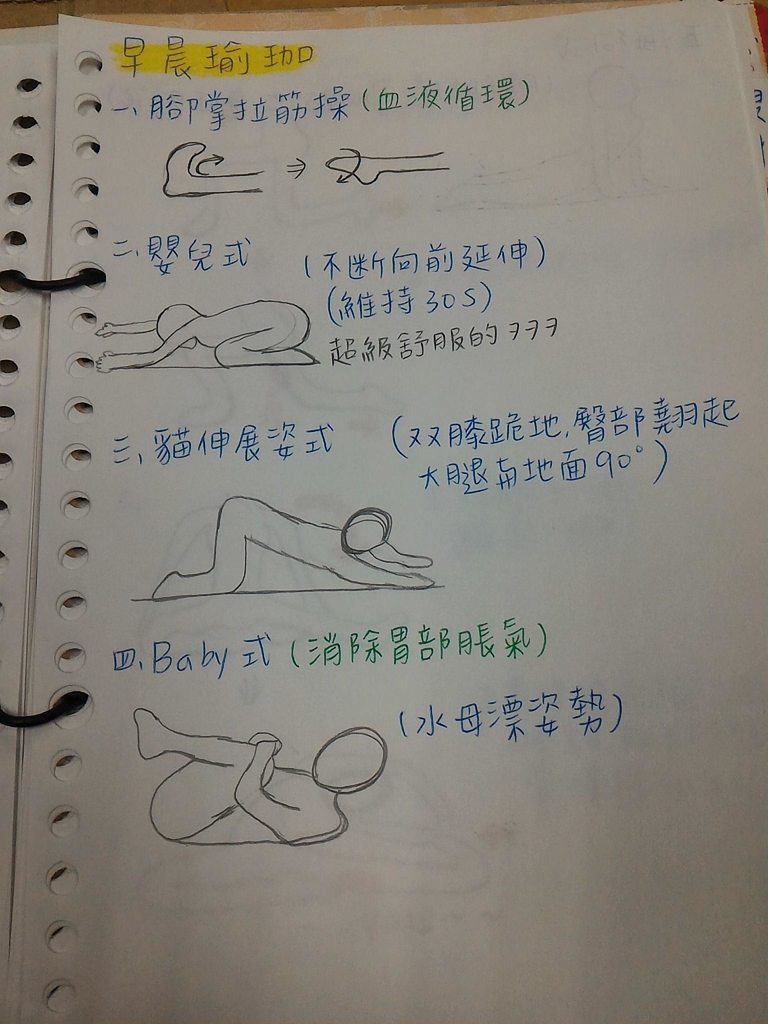 早晨瑜珈
一、腳掌拉筋操(血液循環)
二、嬰兒式 (不斷向前延伸)
(維持30S)
超級舒服的ㄋㄋㄋ
三、貓伸展姿式 (双膝跪地,臀部翹起
大腿與地面90°)
四、Baby式(消除胃部脹氣)
(水母漂姿勢)